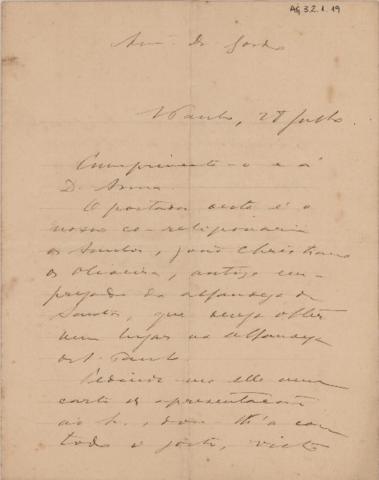 AG 3.2.1.19
Am.º Dr.
S. Paulo, 28 Julho.
Cumprimento-o e á
D. Anna.
O portador desta é o
nosso co-religionario
de Santos, João Christiano
de Oliveira, antigo em-
pregado da alfandega de
Santos, que deseja obter
um lugar na alfandega
de S. Paulo.
Pedindo-me elle uma
carta de apresentação
ao S., dou-lh'a com
todo o gosto, visto